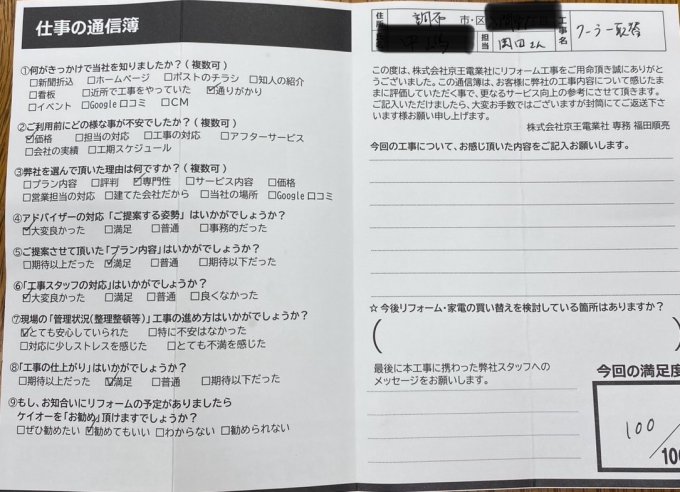 仕事の通信簿
①何がきっかけで当社を知りましたか?(複数可)
□新聞折込 □ホームページ □ポストのチラシ □知人の紹介
□看板 □近所で工事をやっていた ☑通りがかり
□イベント □Google口コミ □CM
②ご利用前にどの様な事が不安でしたか?(複数可)
☑価格 □担当の対応 □工事の対応 □アフターサービス
□会社の実績 □工期スケジュール
③弊社を選んで頂いた理由は何ですか?(複数可)
□プラン内容 □評判 ☑専門性 □サービス内容 □価格
□営業担当の対応 □建てた会社だから □当社の場所 □Google口コミ
④アドバイザーの対応「ご提案する姿勢」はいかがでしょうか?
☑大変良かった □満足 □普通 □事務的だった
⑤ご提案させて頂いた「プラン内容」はいかがでしょうか?
□期待以上だった ☑満足 □普通 □期待以下だった
⑥「工事スタッフの対応」はいかがでしょうか?
☑大変良かった □満足 □普通 □良くなかった
⑦現場の「管理状況(整理整頓等)」工事の進め方はいかがでしょうか?
☑とても安心していられた □特に不安はなかった
□対応に少しストレスを感じた □とても不満を感じた
⑧「工事の仕上がり」はいかがでしょうか?
□期待以上だった ☑満足 □普通 □期待以下だった
⑨もし、お知合いにリフォームの予定がありましたら
ケイオーを「お勧め」頂けますでしょうか?
□ぜひ勧めたい ☑勧めてもいい □わからない □勧められない
住所 調布 市・区
担当 岡田さん
工事名 クーラー取替
この度は、株式会社京王電業社にリフォーム工事をご用命頂き誠にありがとうございました。この通信簿は、お客様に弊社の工事内容について感じたままに評価していただく事で、更なるサービス向上の参考にさせて頂きます。
ご記入いただけましたら、大変お手数ではございますが封筒にてご返送下さいます様お願い申し上げます。
株式会社京王電業社 専務 福田順亮
今回の工事について、お感じ頂いた内容をご記入お願いします。
☆今後リフォーム・家電の買い替えを検討している箇所はありますか?
( )
最後に本工事に携わった弊社スタッフへの
メッセージをお願いします。
今回の満足度
100/100